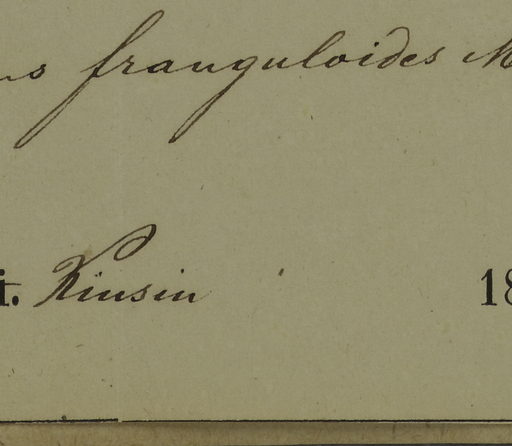 us franguloides M
t. Kiusiu
18